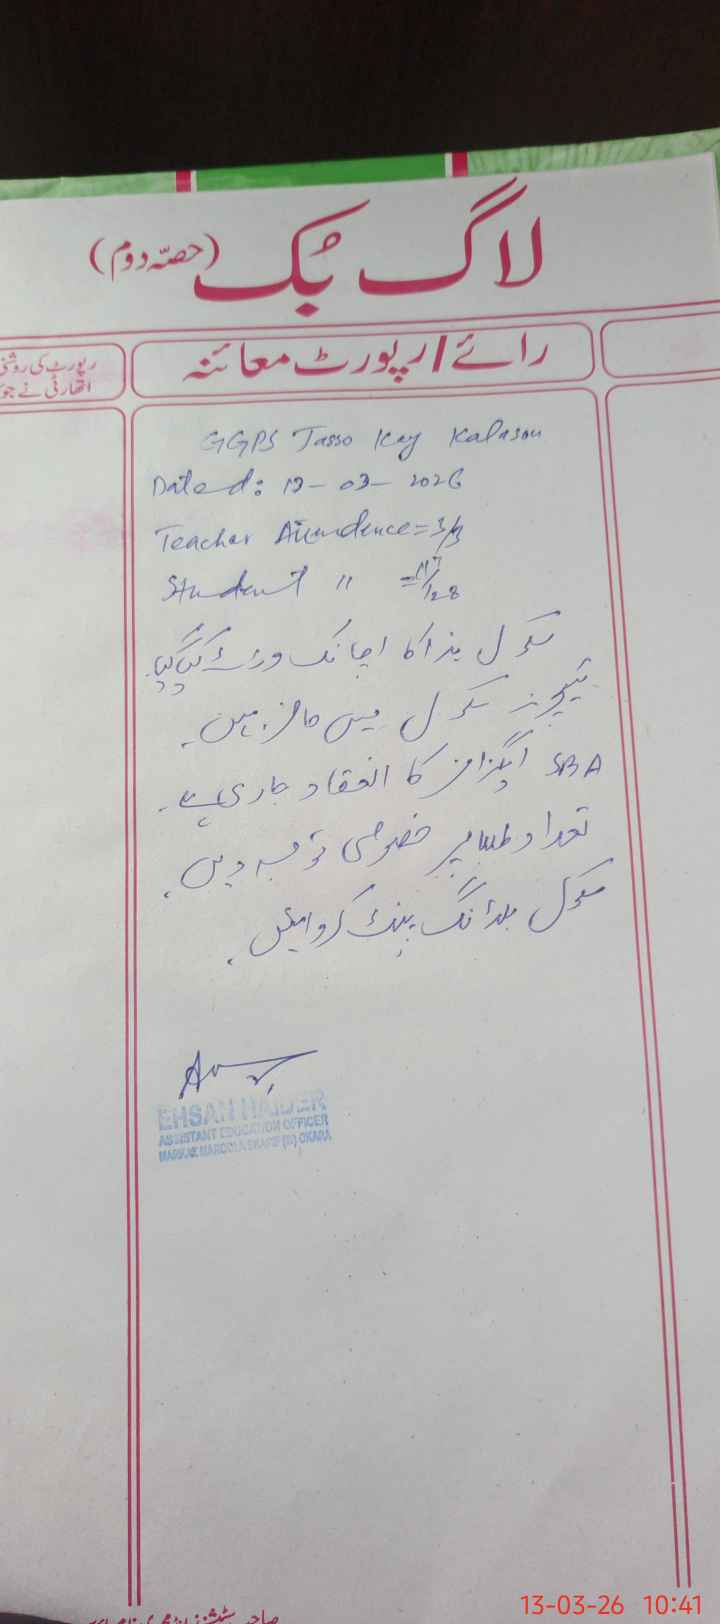 لاگ بُک (حصّہ دوم)
رائے / رپورٹ معائنہ
رپورٹ کی روشنی
اتھارٹی نے جو
GGPS Tasso Kay Kalason
Dated: 13-03-2026
Teacher Attendence = 3/3
Student " = 117/128
سکول ہذا کا اچانک وزٹ کیا گیا۔
ٹیچرز سکول میں حاضر ہیں۔
SBA ایگزامز کا انعقاد جاری ہے۔
تعداد طلبا پر خصوصی توجہ دیں۔
سکول بلڈنگ پینٹ کروائیں۔
EHSAN HAIDER
ASSISTANT EDUCATION OFFICER
MARKAZ (W) OKARA
13-03-26 10:41